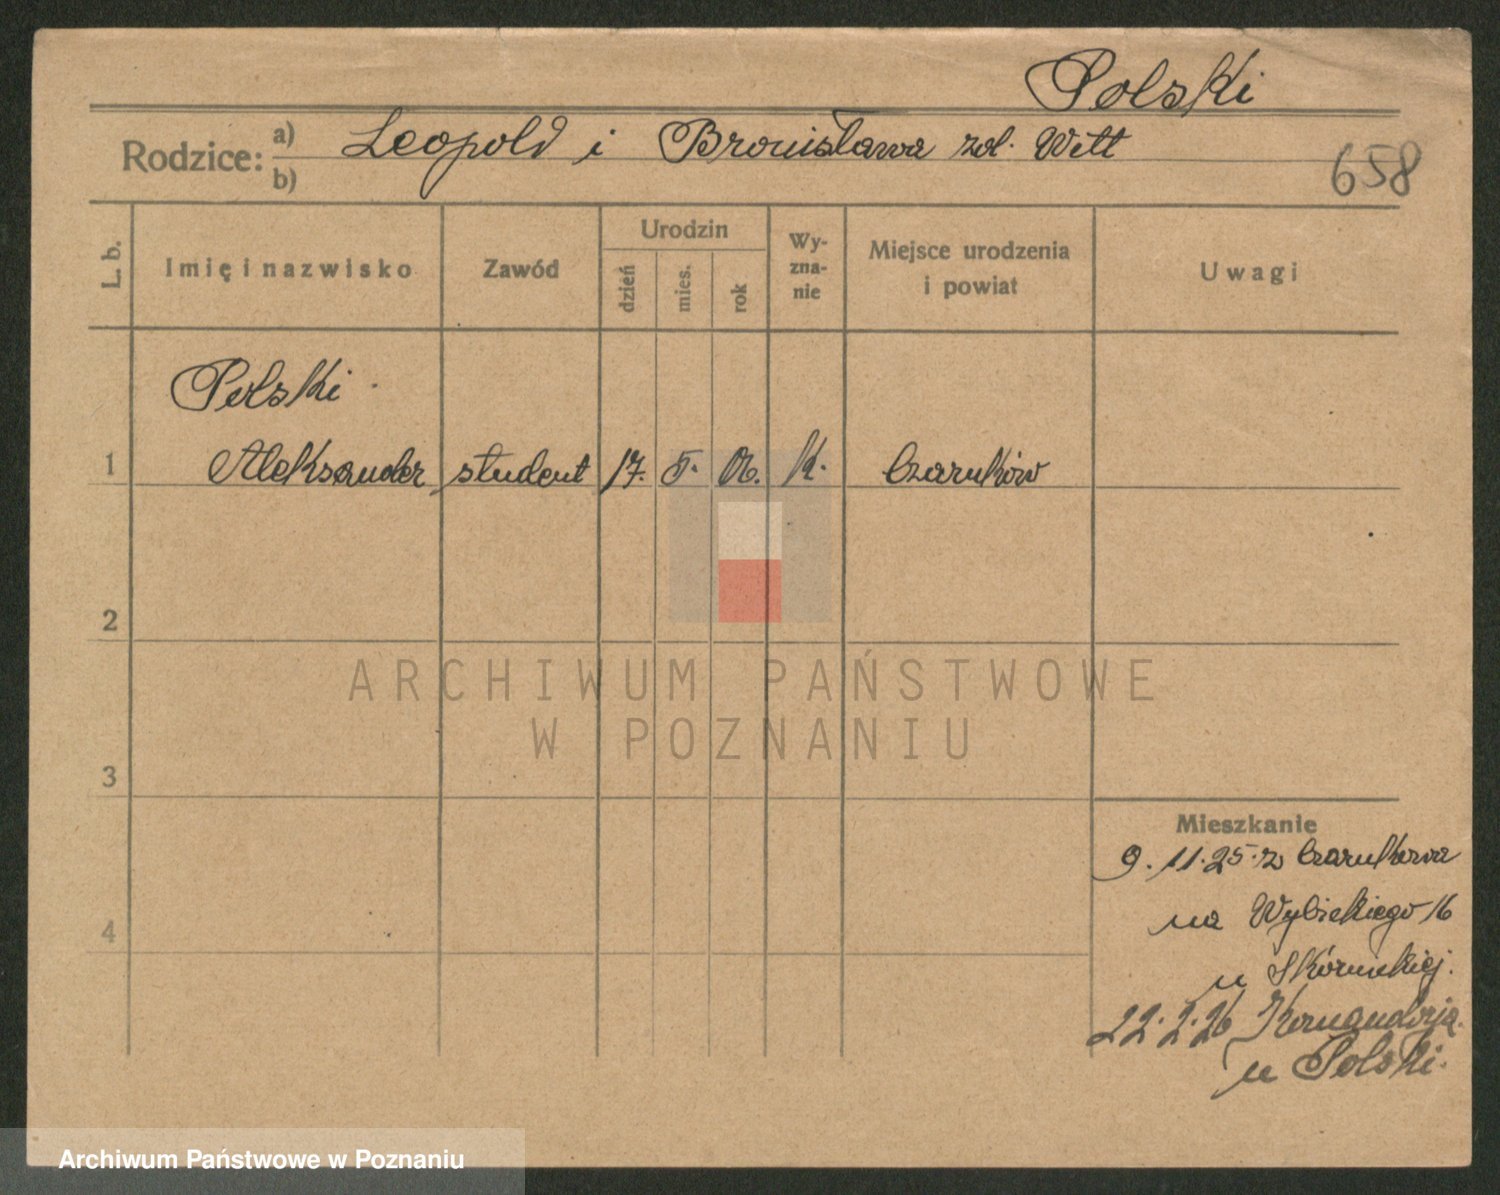 Polski
Rodzice: a) Leopold i Bronisława zol. Witt
b)
658
L. b.
Imię i nazwisko
Zawód
Urodzin
dzień
mies.
rok
Wy-
zna-
nie
Miejsce urodzenia
i powiat
Uwagi
Polski
1 Aleksander student 17. 5. 06. K. Czarnków
2
3
4
ARCHIWUM PAŃSTWOWE
W POZNANIU
Mieszkanie
9. 11. 25. z Czarnkowa
na Wybickiego 16
u Skórnickiej.
22. 2. 26 Komandorja.
u Polski.
Archiwum Państwowe w Poznaniu